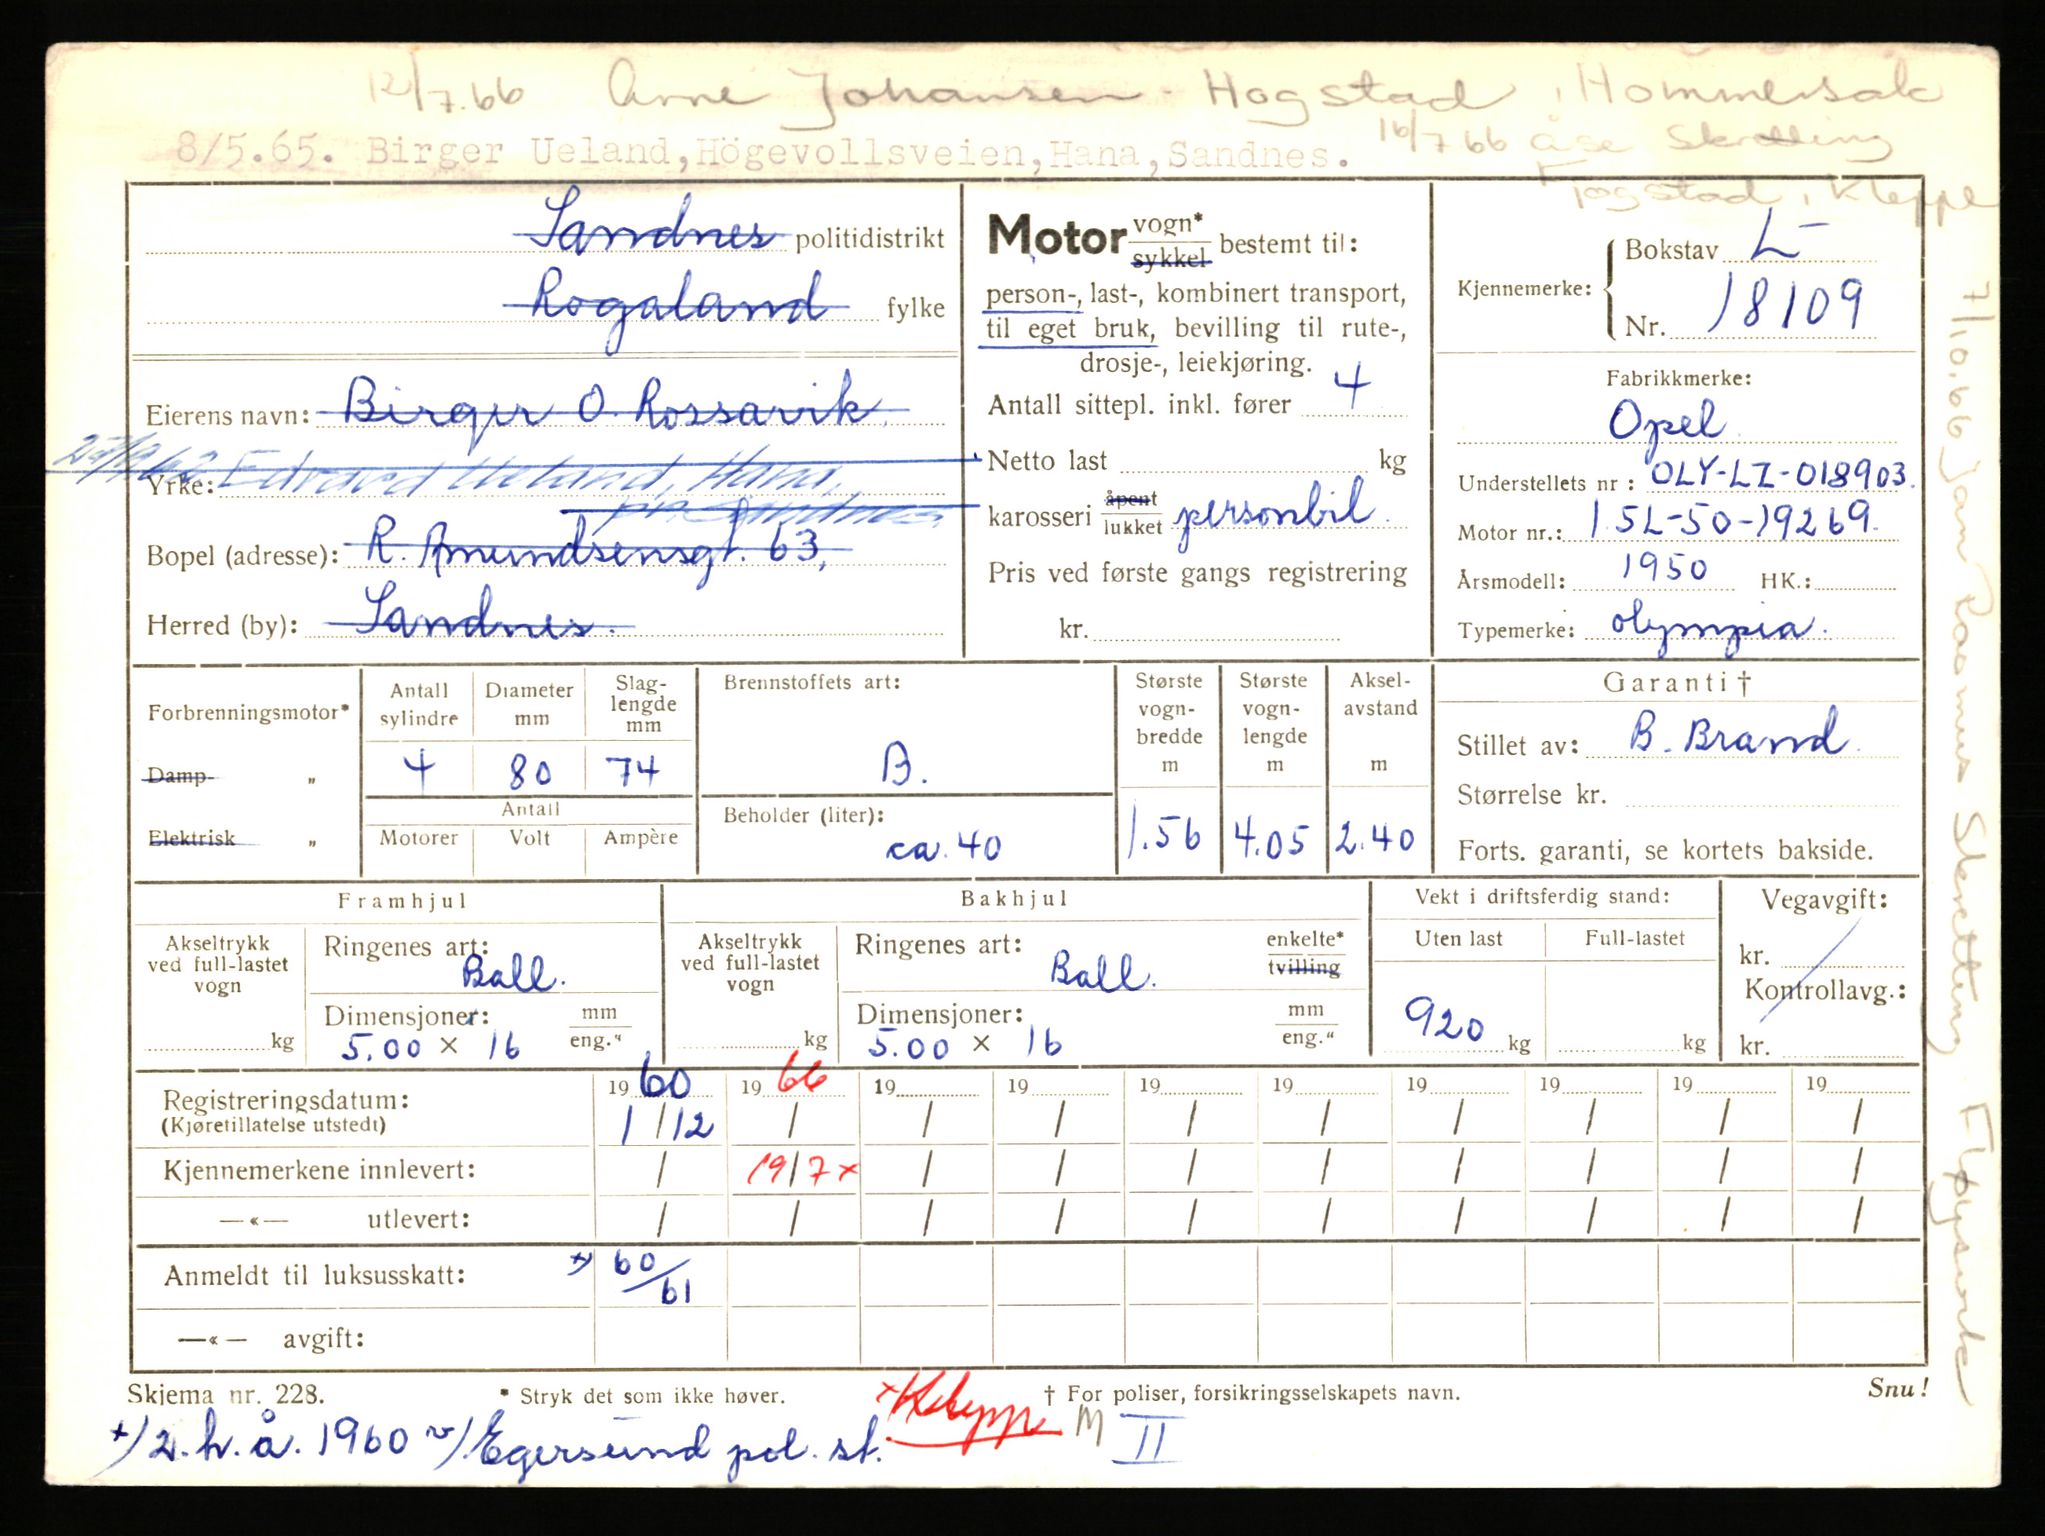 12/7.66 Arne Johansen. Hogstad, Hommersak
8/5.65. Birger Ueland, Högevollsveien, Hana, Sandnes.
16/7 66 Åse Skretting
Fogstad, Kleppe
Sandnes politidistrikt
Rogaland fylke
Eierens navn: Birger O. Rossavik
Edvard Ueland, Hana,
Yrke:
pr. Sandnes
Bopel (adresse): R. Amundsensgt. 63,
Herred (by): Sandnes.
Motor vogn* sykkel bestemt til:
person-, last-, kombinert transport,
til eget bruk, bevilling til rute-,
drosje-, leiekjøring.
Antall sittepl. inkl. fører 4
Netto last kg
karosseri åpent lukket personbil.
Pris ved første gangs registrering
kr.
Kjennemerke: Bokstav L-
Nr. 18109
Fabrikkmerke:
Opel
Understellets nr: OLY-LZ-018903.
Motor nr.: 1.5L-50-19269.
Årsmodell: 1950 HK.:
Typemerke: Olympia.
7/10.66 Jan Rasmus Skretting
Forbrenningsmotor*
Damp- „
Elektrisk „
Antall sylindre 4
Diameter mm 80
Slaglengde mm 74
Antall
Motorer Volt Ampère
Brennstoffets art:
B.
Beholder (liter):
ca. 40
Største vogn-bredde m 1.56
Største vogn-lengde m 4.05
Aksel-avstand m 2.40
Garanti †
Stillet av: B. Brand.
Størrelse kr.
Forts. garanti, se kortets bakside.
Framhjul
Akseltrykk ved full-lastet vogn kg
Ringenes art: Ball.
Dimensjoner: mm eng."
5.00 × 16
Bakhjul
Akseltrykk ved full-lastet vogn kg
Ringenes art: Ball. enkelte* tvilling
Dimensjoner: mm eng."
5.00 × 16
Vekt i driftsferdig stand:
Uten last Full-lastet
920 kg kg
Vegavgift:
kr.
Kontrollavg.:
kr.
Registreringsdatum: 1960 1966 19 19 19 19 19 19 19 19
(Kjøretillatelse utstedt) 1/12 / / / / / / / / /
Kjennemerkene innlevert: / 19/7× / / / / / / / /
—«— utlevert: / / / / / / / / / /
Anmeldt til luksusskatt: 60/61
—«— avgift:
Skjema nr. 228. * Stryk det som ikke høver. † For poliser, forsikringsselskapets navn. Snu!
×) 2. h. å. 1960 Egersund pol. st. × Kleppe M II